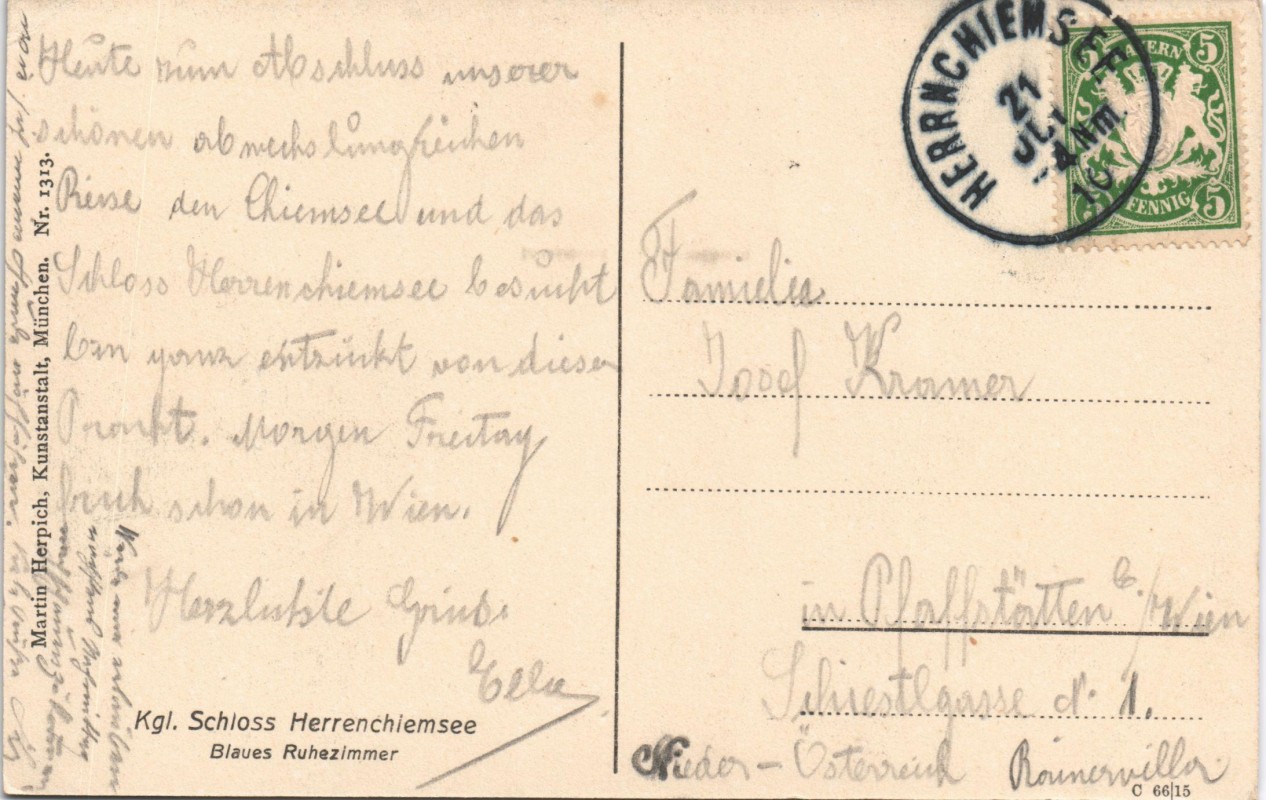 Heute zum Abschluss unserer
schönen abwechslungreichen
Reise den Chiemsee und das
Schloss Herrenchiemsee besucht
bin ganz entzückt von dieser
Pracht. Morgen Freitag
früh schon in Wien.
Herzlichste Grüße
Ella
Kgl. Schloss Herrenchiemsee
Blaues Ruhezimmer
Martin Herpich, Kunstanstalt, München. Nr. 1313.
HERRNCHIEMSEE
21
JUL
4 Nm.
10
BAYERN
5 5
5 PFENNIG 5
Familie
Josef Kramer
in Pfaffstätten b/Wien
Schiestlgasse N. 1.
Nieder-Österreich Rainervilla
C 66|15